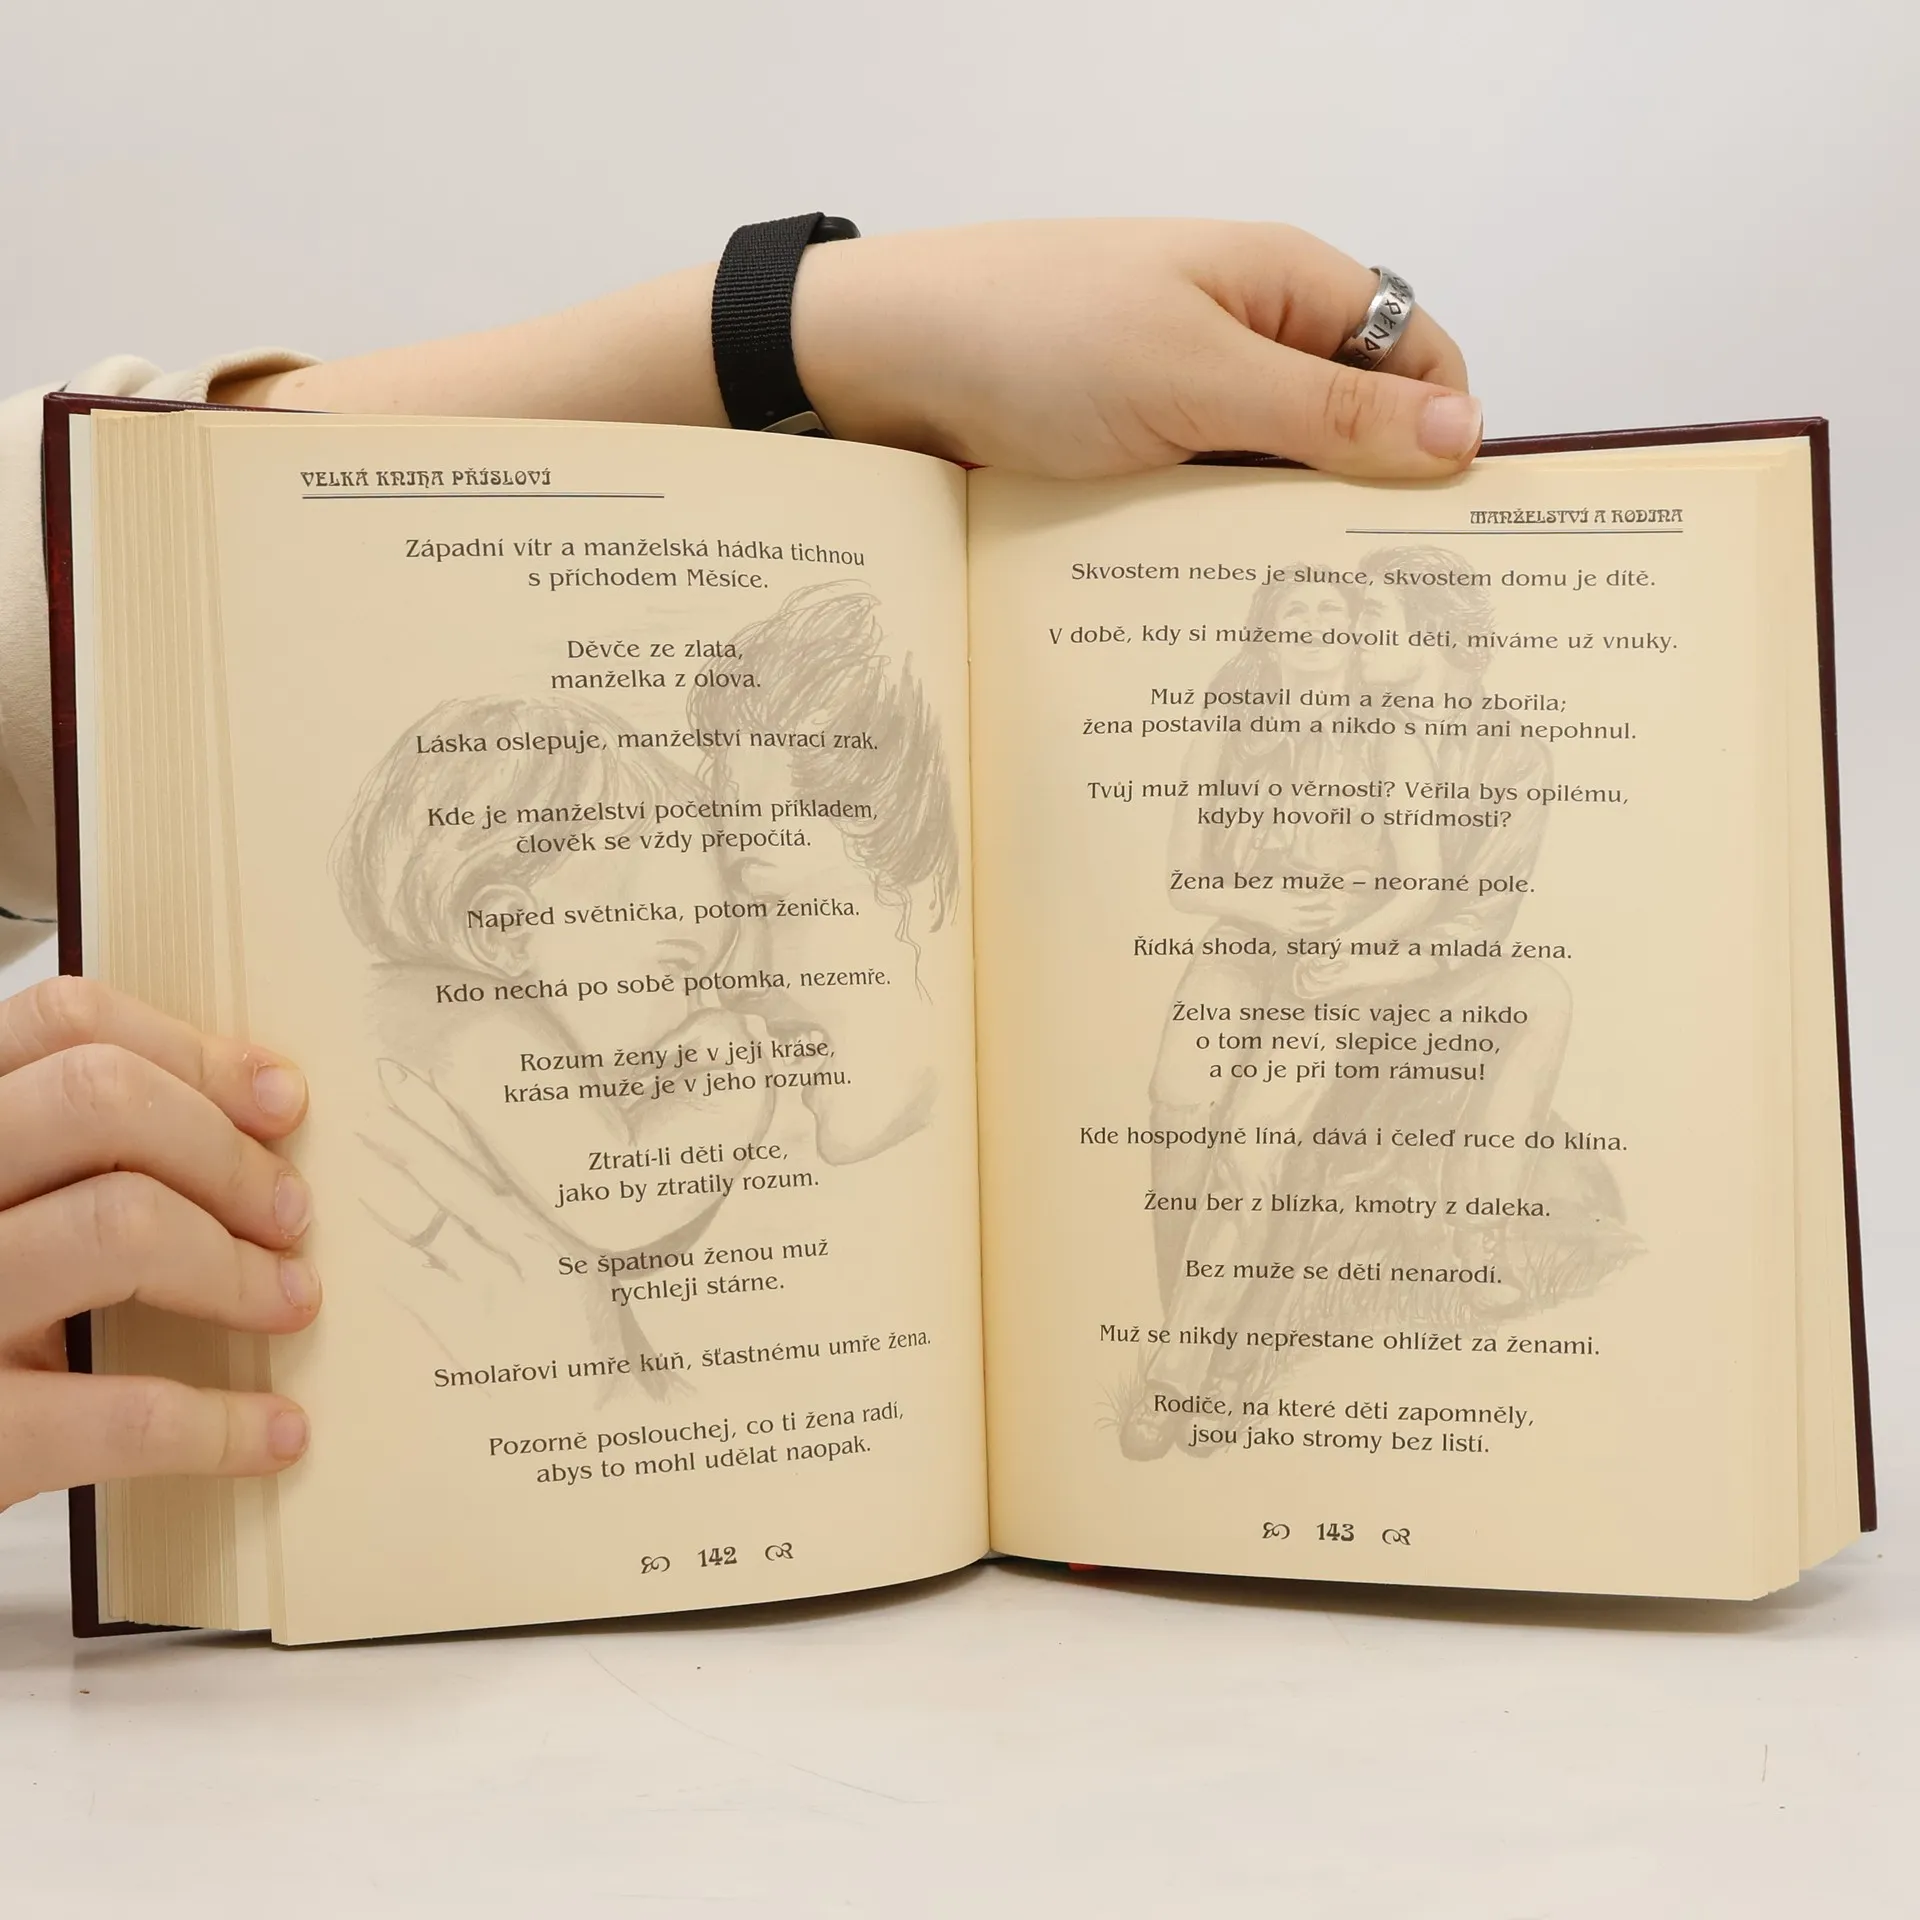 VELKÁ KNIHA PŘÍSLOVÍ
Západní vítr a manželská hádka tichnou
s příchodem Měsíce.
Děvče ze zlata,
manželka z olova.
Láska oslepuje, manželství navrací zrak.
Kde je manželství početním příkladem,
člověk se vždy přepočítá.
Napřed světnička, potom ženička.
Kdo nechá po sobě potomka, nezemře.
Rozum ženy je v její kráse,
krása muže je v jeho rozumu.
Ztratí-li děti otce,
jako by ztratily rozum.
Se špatnou ženou muž
rychleji stárne.
Smolařovi umře kůň, šťastnému umře žena.
Pozorně poslouchej, co ti žena radí,
abys to mohl udělat naopak.
142
MANŽELSTVÍ A RODINA
Skvostem nebes je slunce, skvostem domu je dítě.
V době, kdy si můžeme dovolit děti, míváme už vnuky.
Muž postavil dům a žena ho zbořila;
žena postavila dům a nikdo s ním ani nepohnul.
Tvůj muž mluví o věrnosti? Věřila bys opilému,
kdyby hovořil o střídmosti?
Žena bez muže – neorané pole.
Řídká shoda, starý muž a mladá žena.
Želva snese tisíc vajec a nikdo
o tom neví, slepice jedno,
a co je při tom rámusu!
Kde hospodyně líná, dává i čeleď ruce do klína.
Ženu ber z blízka, kmotry z daleka.
Bez muže se děti nenarodí.
Muž se nikdy nepřestane ohlížet za ženami.
Rodiče, na které děti zapomněly,
jsou jako stromy bez listí.
143